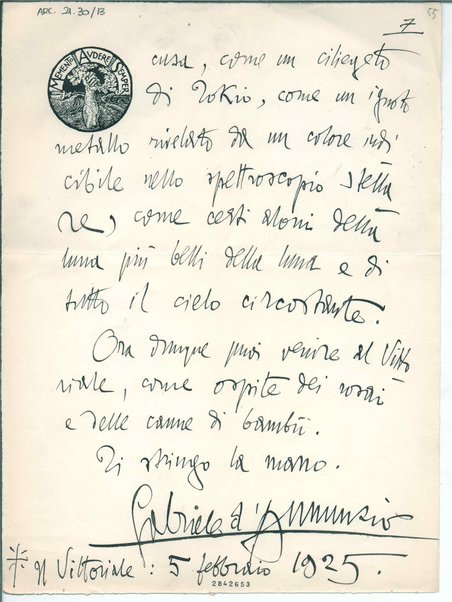 ARC. 21.30/B
55
7
MEMENTO AUDERE SEMPER
cusa, come un ciliegeto
di Tokio, come un ignoto
metallo rivelato da un colore indi
cibile nello spettroscopio stella
re, come certi aloni della
luna più belli della luna e di
tutto il cielo circostante.
Ora dunque puoi venire al Vitto
riale, come ospite dei rosai
e delle canne di bambù.
Ti stringo la mano.
Gabriele d'Annunzio
Il Vittoriale: 5 febbraio 1925.
2842653